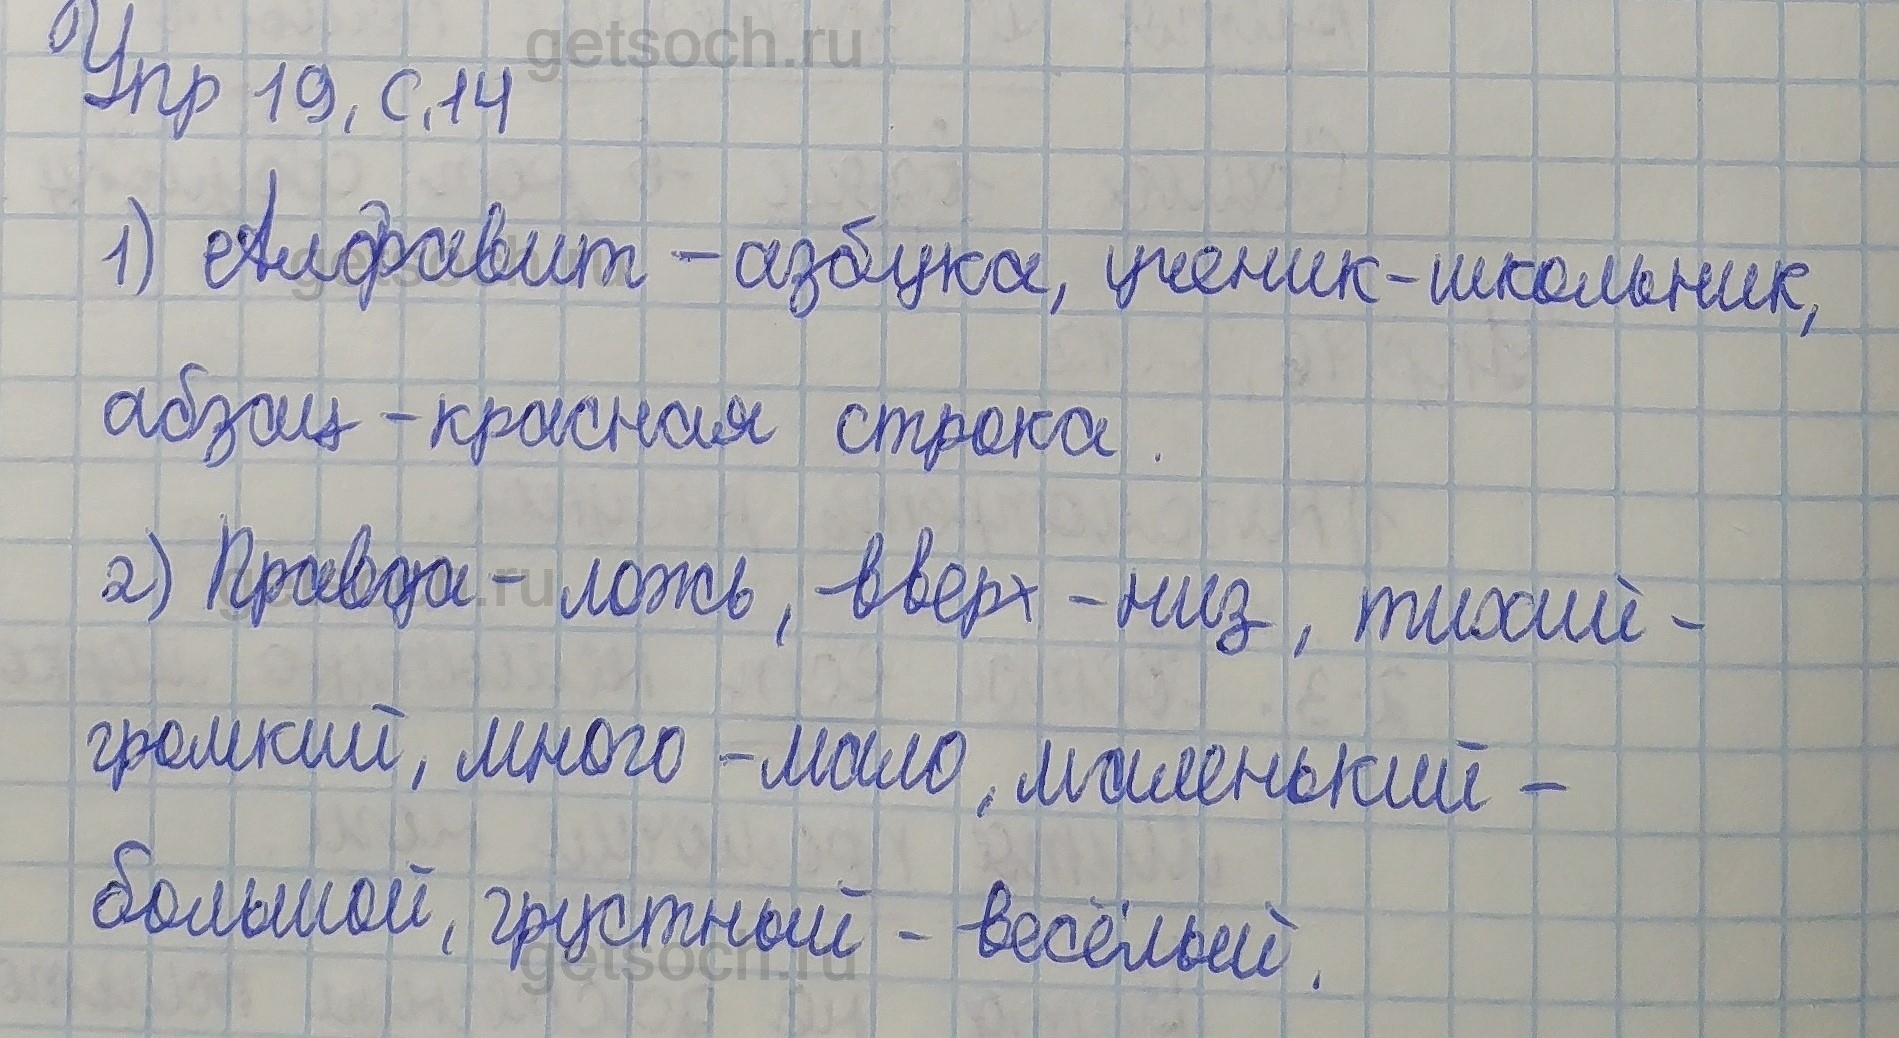 getsoch.ru
Упр 19, с, 14
1) Алфавит - азбука, ученик - школьник,
абзац - красная строка.
2) Правда - ложь, вверх - низ, тихий -
громкий, много - мало, маленький -
большой, грустный - весёлый.
getsoch.ru